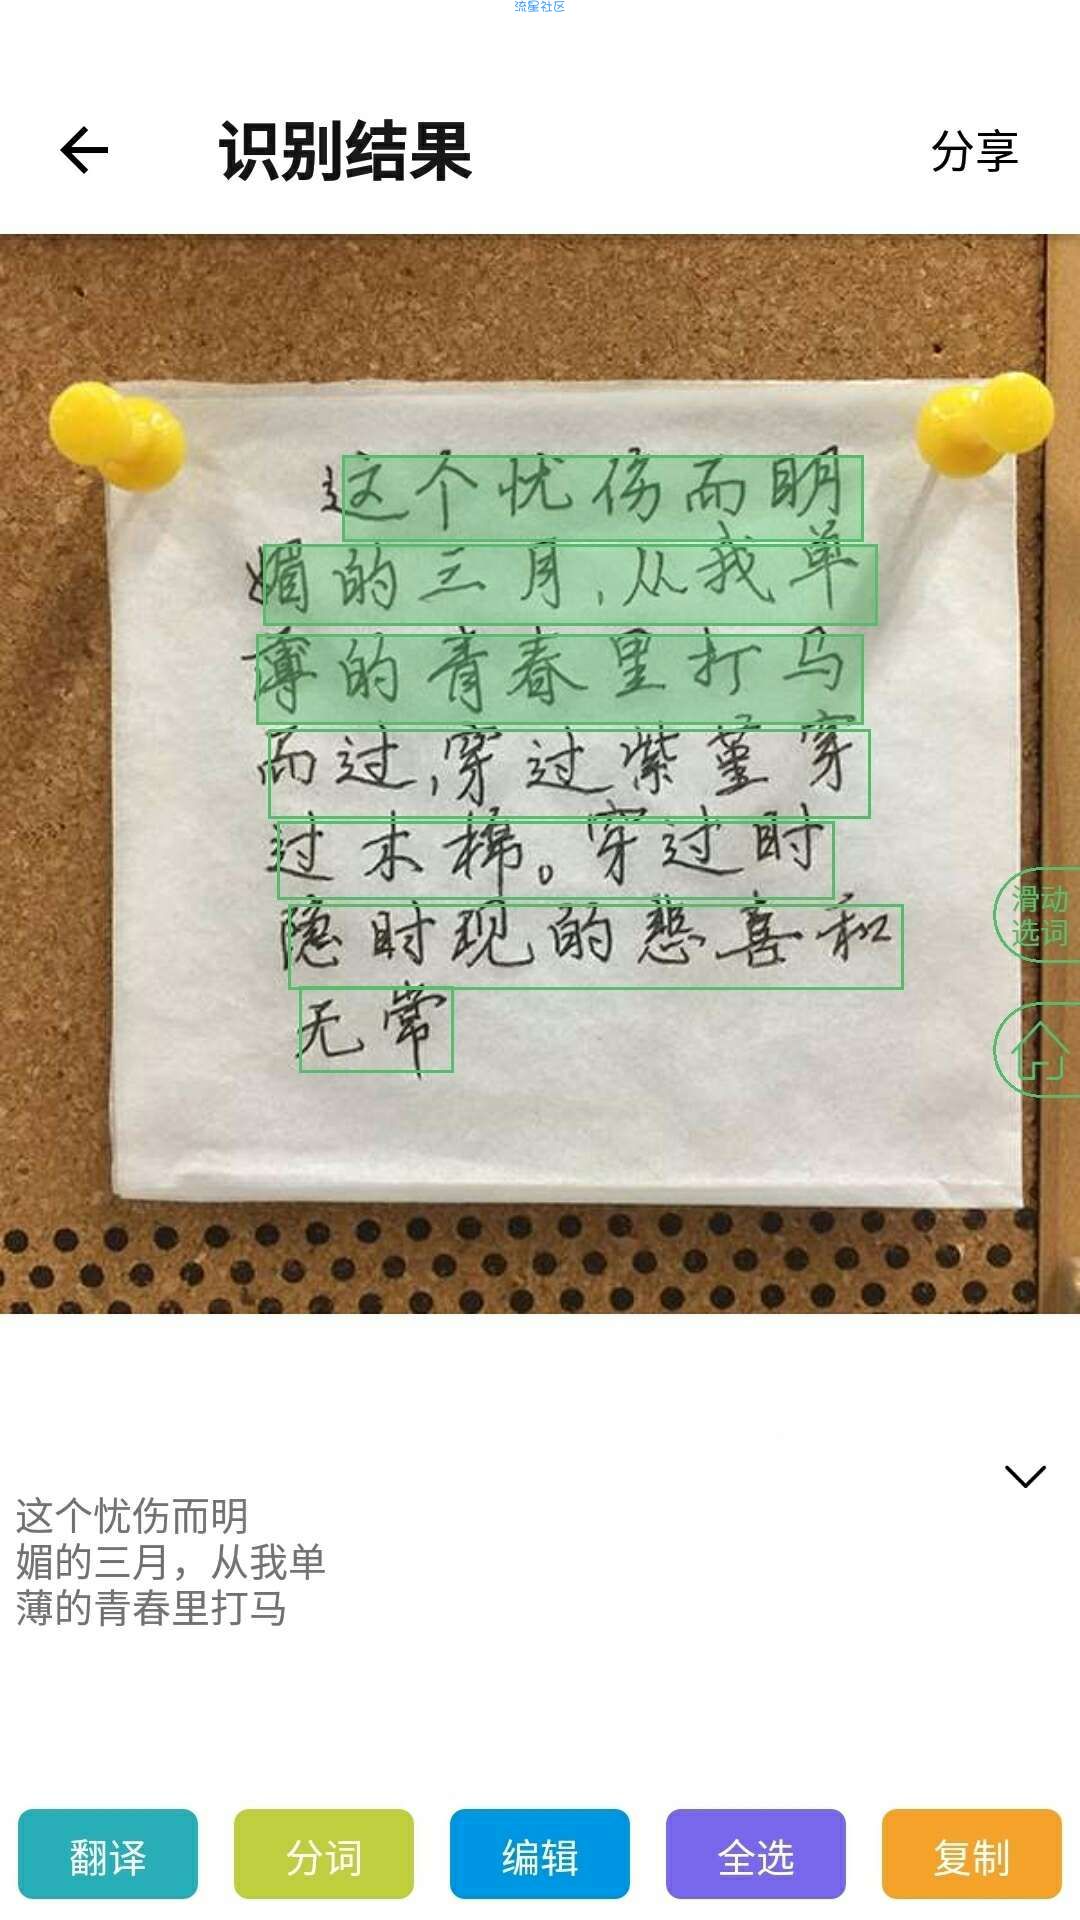 流星社区
识别结果
分享
这个忧伤而明
媚的三月,从我单
薄的青春里打马
而过,穿过紫堇穿
过木棉。穿过时
隐时现的悲喜和
无常
滑动
选词
这个忧伤而明
媚的三月，从我单
薄的青春里打马
翻译 分词 编辑 全选 复制